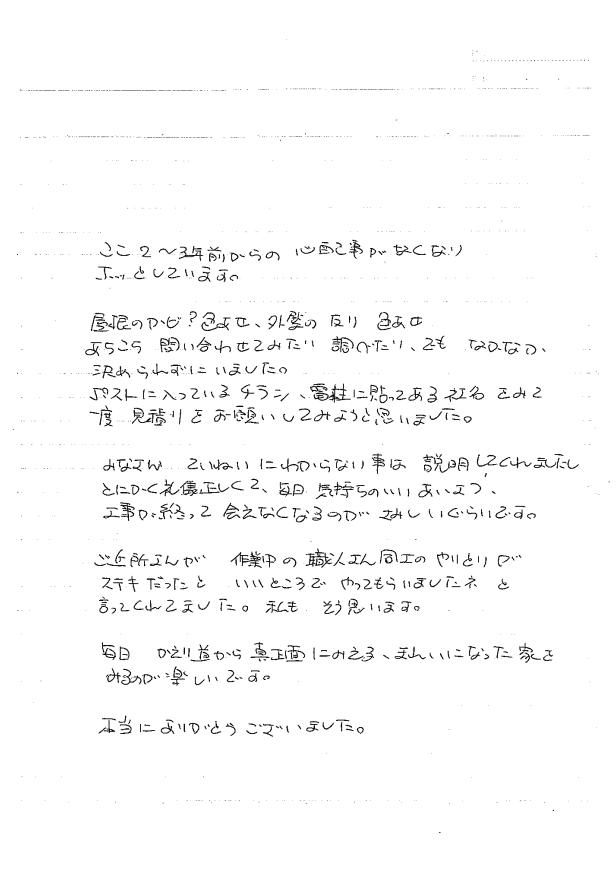 ここ2〜3年前からの 心配事がなくなり
ホッとしています。
屋根のカビ?色あせ、外壁の反り 色あせ
あちこち 問い合わせてみたり 調べたり、でも なかなか、
決められずにいました。
ポストに入っているチラシ、電柱に貼ってある社名をみて
一度 見積りをお願いしてみようと思いました。
みなさん ていねいにわからない事は 説明してくれましたし
とにかく礼儀正しくて、毎日 気持ちのいい あいさつ、
工事が終って 会えなくなるのが さみしいぐらいです。
ご近所さんが 作業中の職人さん同士のやりとりが
ステキだったと いいところで やってもらいましたネ と
言ってくれてました。私も そう思います。
毎日 かえり道から真正面にみえる、きれいになった家を
みるのが楽しいです。
本当にありがとうございました。